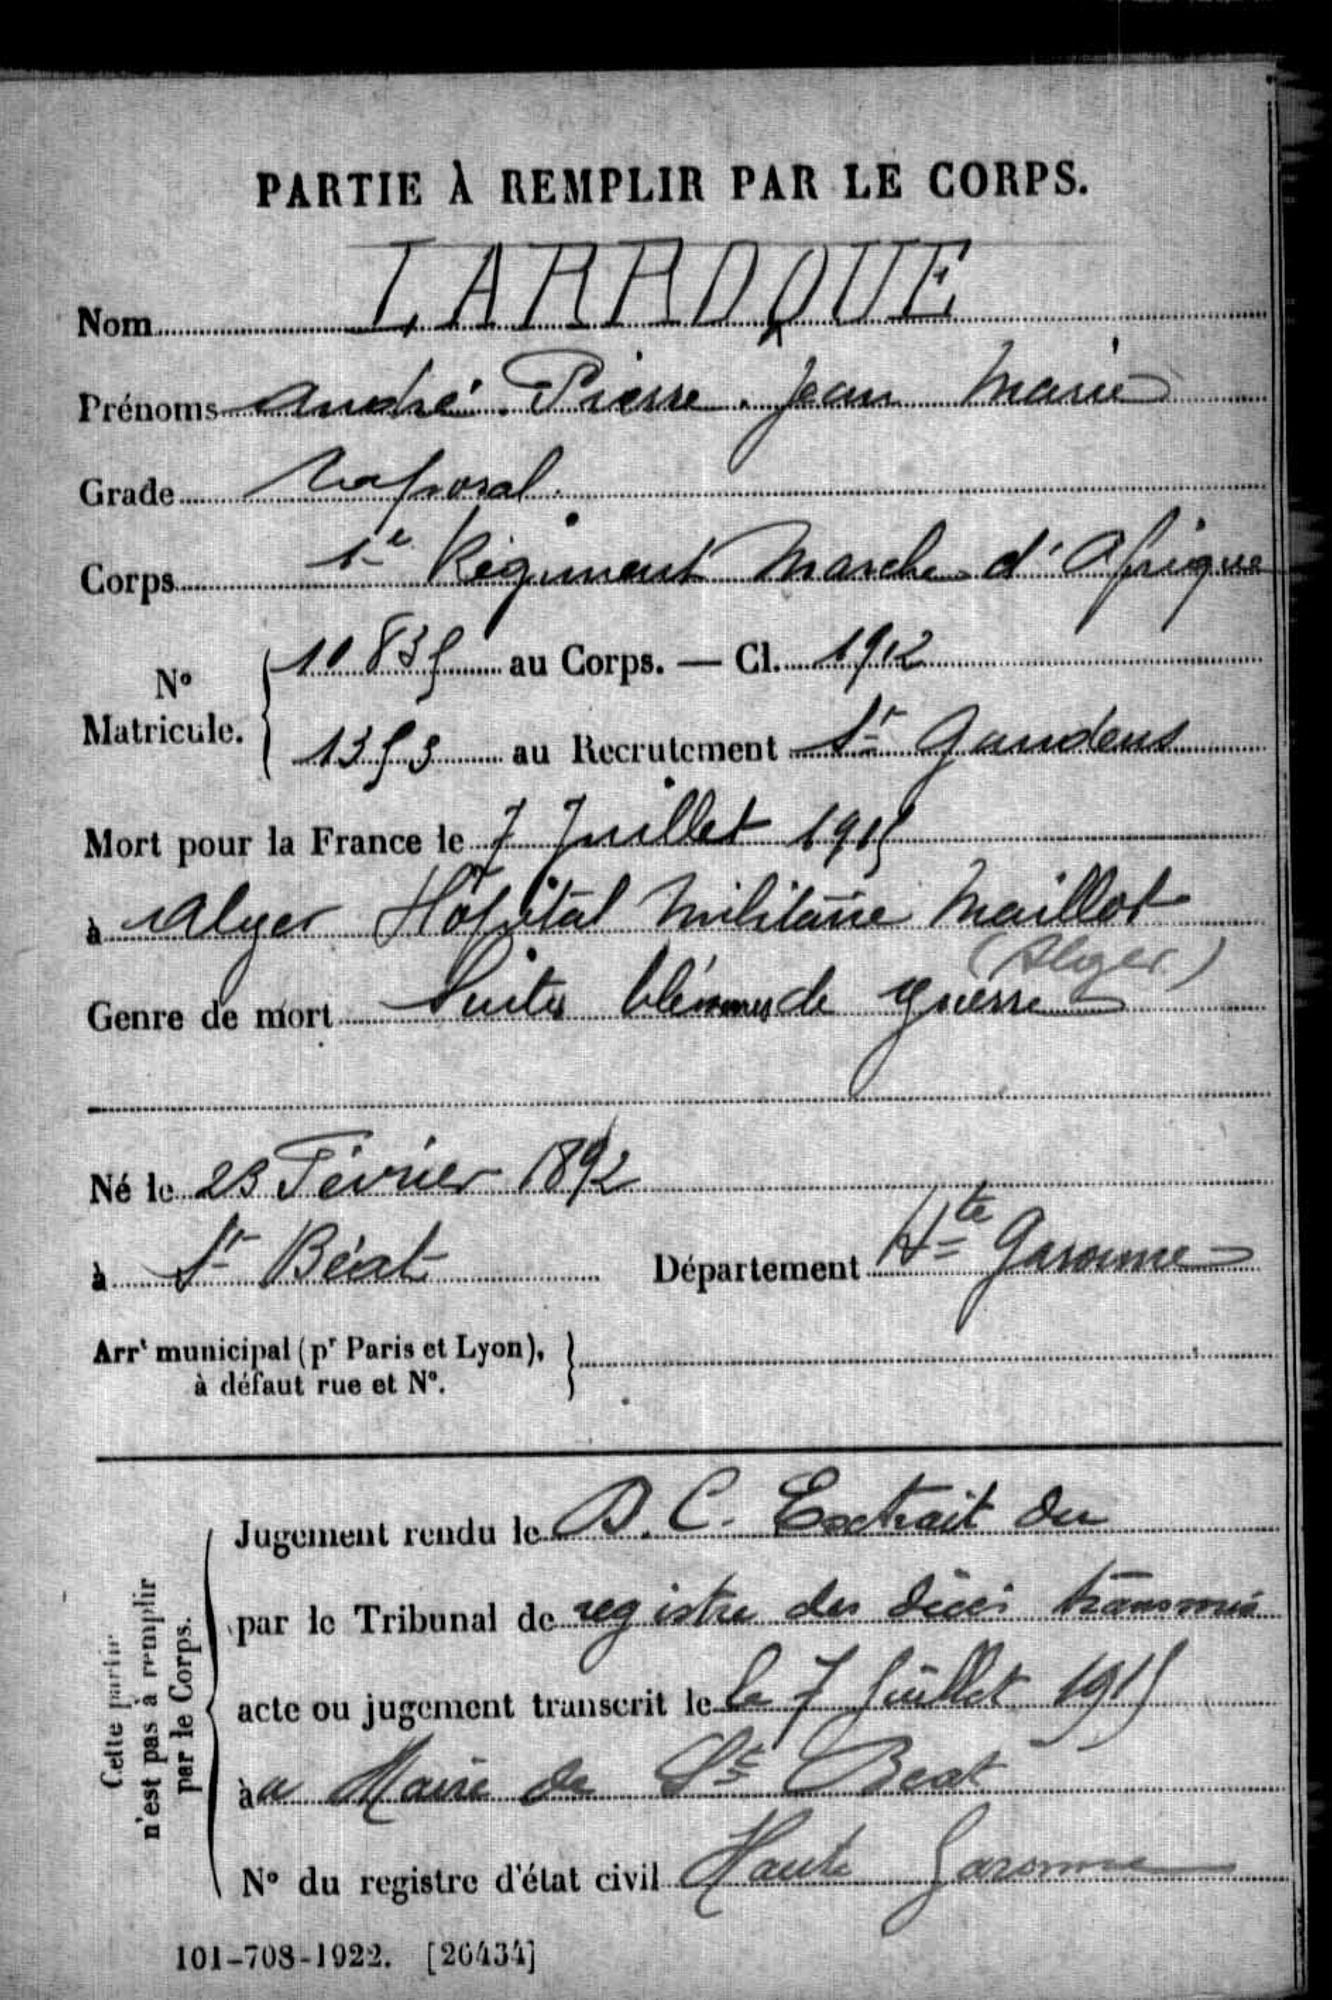 PARTIE À REMPLIR PAR LE CORPS.
Nom LARROQUE
Prénoms André. Pierre. Jean Marie
Grade Caporal.
Corps 1e Régiment Marche d'Afrique
No
Matricule.
10835 au Corps. — Cl. 1912
1353 au Recrutement St Gaudens
Mort pour la France le 7 Juillet 1915
à Alger Hôpital Militaire Maillot
(Alger)
Genre de mort Suites blessures de guerre
Né le 23 Février 1892
à St Béat Département Hte Garonne
Arrt municipal (pr Paris et Lyon),
à défaut rue et No.
Cette partie
n'est pas à remplir
par le Corps.
Jugement rendu le D. C. Extrait du
par le Tribunal de registre des décès transmis
acte ou jugement transcrit le le 7 Juillet 1915
à a Maire de St Beat
No du registre d'état civil Haute Garonne
101-708-1922. [26434]